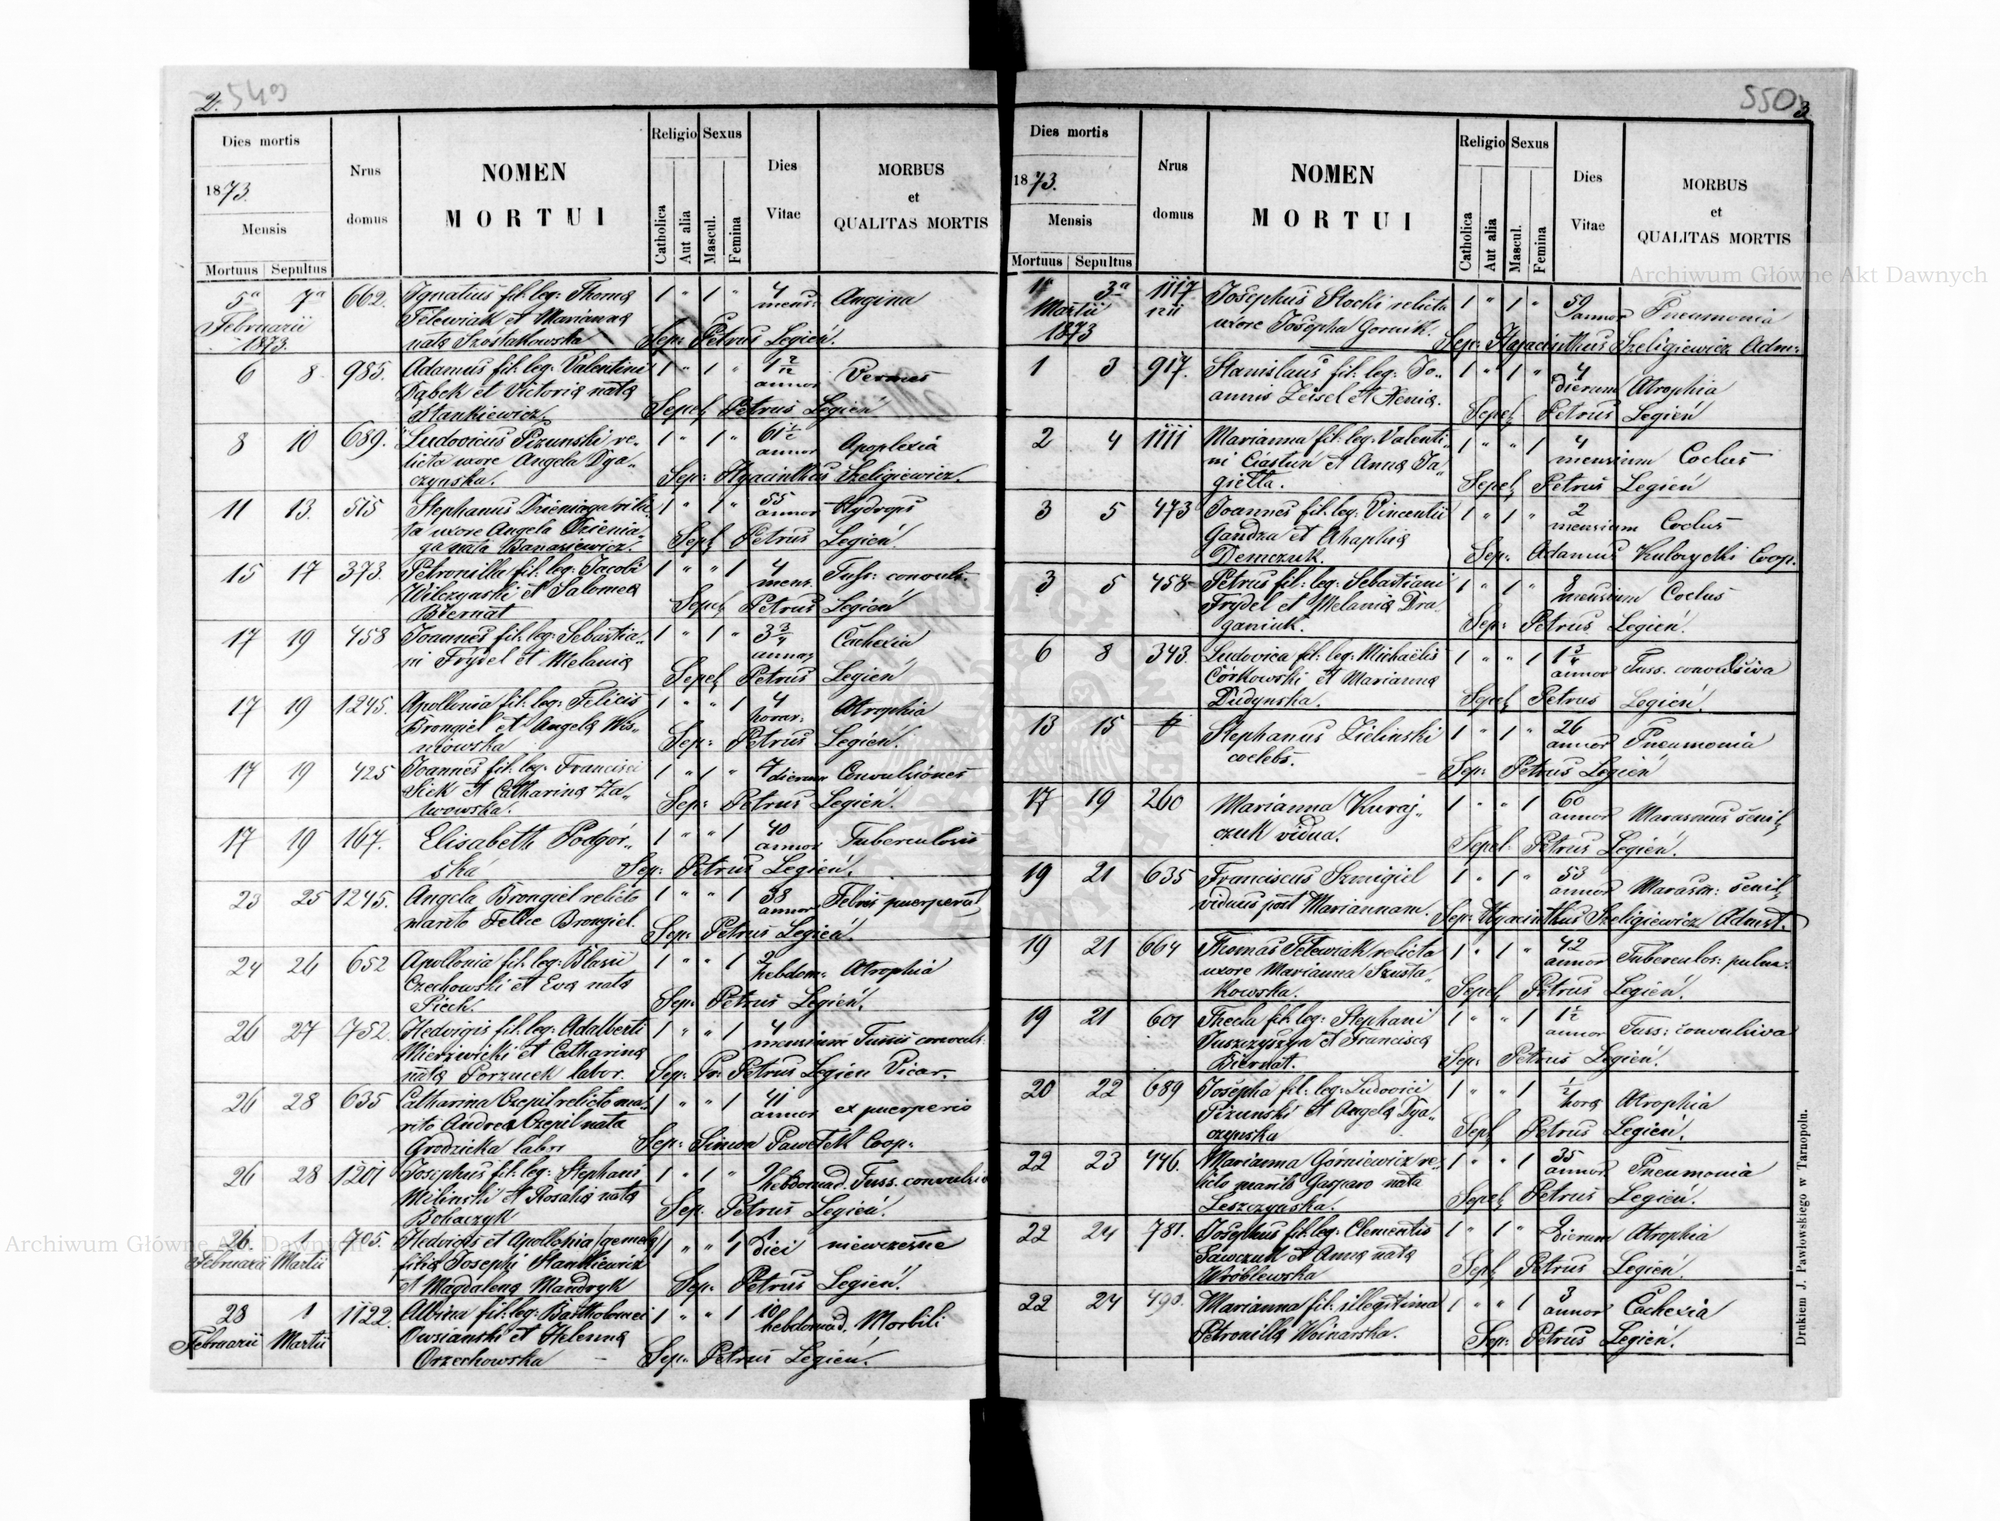 2. 549
Dies mortis
1873.
Mensis
Mortuus Sepultus
Nrus domus
NOMEN
MORTUI
Religio Sexus
Catholica Aut alia Mascul. Femina
Dies Vitae
MORBUS
et
QUALITAS MORTIS
5a 7a 662. Ignatius fil: leg: Thomæ 1 " 1 " 4 mens: Angina
Februarii Telewiak et Mariannæ
1873. nata Szostakowska Sep: Petrus Legień.
6 8 985. Adamus fil: leg: Valentini 1 " 1 " 1 2/12 annor Vermes
Dąbek et Victoriæ natæ
Stankiewicz. Sepel Petrus Legień
8 10 689. Ludovicus Pizunski re-
licta uxore Angela Dya- 1 " 1 " 61 1/2 annor Apoplexia
czynska. Sep: Hyacinthus Szeligiewicz.
11 13. 515 Stephanus Dzieniaga relic-
ta uxore Angela Dzienia- 1 " 1 " 55 annor Hydrops
ga nata Banasiewicz. Sepl Petrus Legień.
15 17 373. Petronilla fil: leg: Jacobi 1 " " 1 4 mens. Tuss: convuls:
Wilczynski et Salomeæ
Biernat Sepel Petrus Legień
17 19 458 Joannes fil: leg: Sebastia- 1 " 1 " 3 3/4 annor Cachexia
ni Frydel et Melaniæ
Sepel Petrus Legień
17 19 1245. Apollonia fil: leg: Felicis 1 " " 1 4 horar: Atrophia
Brongiel et Angelæ Wis-
niowska Sep: Petrus Legień.
17 19 425 Joannes fil: leg: Francisci 1 " 1 " 7 dierum Convulsiones
Siek et Catharinæ Za-
lwowska. Sep: Petrus Legień.
17 19 167. Elisabeth Podgór- 1 " " 1 40 annor Tuberculosis
ska Sep: Petrus Legień.
23 25 1245. Angela Brongiel relicto 1 " " 1 38 annor Febris puerperal
marito Felice Brongiel. Sep: Petrus Legień.
24 26 652 Apollonia fil: leg: Blasii 1 " " 1 2 hebdom: Atrophia
Czechowski et Eva nata
Pieck. Sep: Petrus Legień.
26 27 752. Hedvigis fil: leg: Adalberti 1 " " 1 4 mensium Tussis convuls:
Mierzwicki et Catharinæ
nata Porzucek labor. Sep: Pr: Petrus Legień Vicar.
26 28 635 Catharina Czepil relicto ma- 1 " " 1 41 annor ex puerperio
rito Andrea Czepil nata
Grodzicka labor Sep: Simon Pawełek Coop:
26 28 1201 Josephus fil: leg: Stephani 1 " 1 " 2 hebdomad. Tuss. convulsiv
Milinski et Rosaliæ natæ
Bohaczyk Sep. Petrus Legień.
26. 1 705. Hedvigis et Apollonia gemelæ 1 " " 1 1 diei niewczesne
Februarii Martii filiæ Josephi Stankiewicz
et Magdalenæ Mandryk Sep: Petrus Legień.
28 1 1122. Albina fil: leg: Bartholomei 1 " " 1 10 hebdomad. Morbili
Februarii Martii Owsianski et Helennæ
Orzechowska Sep: Petrus Legień.
550 3
Dies mortis
1873.
Mensis
Mortuus Sepultus
Nrus domus
NOMEN
MORTUI
Religio Sexus
Catholica Aut alia Mascul. Femina
Dies Vitae
MORBUS
et
QUALITAS MORTIS
1a 3a 1117 Josephus Stocki relicta 1 " 1 " 59 annor Pneumonia
Martii uxore Josepha Gornik.
1873 Sep: Hyacinthus Szeligiewicz Adm:
1 3 917. Stanislaus fil: leg: Jo- 1 " 1 " 4 dierum Atrophia
annis Zeisel et Xeniæ. Sepel Petrus Legień
2 4 1111 Marianna fil: leg: Valenti- 1 " " 1 4 mensium Coclus
ni Ciastuń et Annæ Ja-
giełła. Sepel Petrus Legień
3 5 473 Joannes fil: leg: Vincentii 1 " 1 " 2 mensium Coclus
Gandza et Ahaphiæ
Demczuk. Sep: Adamus Kulczycki Coop.
3 5 458 Petrus fil: leg: Sebastiani 1 " 1 " mensium Coclus
Frydel et Melaniæ Dra-
ganiuk. Sep: Petrus Legień.
6 8 343. Ludovica fil: leg: Michaëlis 1 " " 1 1 3/4 annor Tuss. convulsiva
Córkowski et Mariannæ
Dudynska. Sepel Petrus Legień.
13 15 Stephanus Zielinski 1 " 1 " 26 annor Pneumonia
coelebs. Sep: Petrus Legień
17 19 260 Marianna Kuraj- 1 " " 1 60 annor Marasmus senil
czuk vidua. Sepel Petrus Legień.
19 21 635 Franciscus Szmigiel 1 " 1 " 53 annor Marasm: senil
viduus post Mariannam. Sep: Hyacinthus Szeligiewicz Admst.
19 21 664 Thomas Telewiak relicta 1 " 1 " 42 annor Tuberculos: pulm:
uxore Marianna Szusta-
kowska. Sepel Petrus Legień.
19 21 601 Thecla fil: leg: Stephani 1 " " 1 1 1/2 annor Tuss: convulsiva
Juszczyszyn et Franciscæ
Biernat. Sep: Petrus Legień.
20 22 689 Josepha fil: leg: Ludovici 1 " " 1 1/2 hora Atrophia
Pizunski et Angelæ Dya-
czynska Sepl Petrus Legień.
22 23 446. Marianna Górniewicz re- 1 " " 1 35 annor Pneumonia
licto marito Gasparo nata
Leszczyńska. Sepel Petrus Legień.
22 24 781. Josephus fil: leg: Clementis 1 " 1 " dierum Atrophia
Sawczuk et Annæ natæ
Wróblewska Sepl Petrus Legień.
22 24 490. Marianna fil: illegitima 1 " " 1 3 annor Cachexia
Petronillæ Woinarska. Sep: Petrus Legień.
Drukiem J. Pawłowskiego w Tarnopolu.
Archiwum Główne Akt Dawnych
Archiwum Główne Akt Dawnych